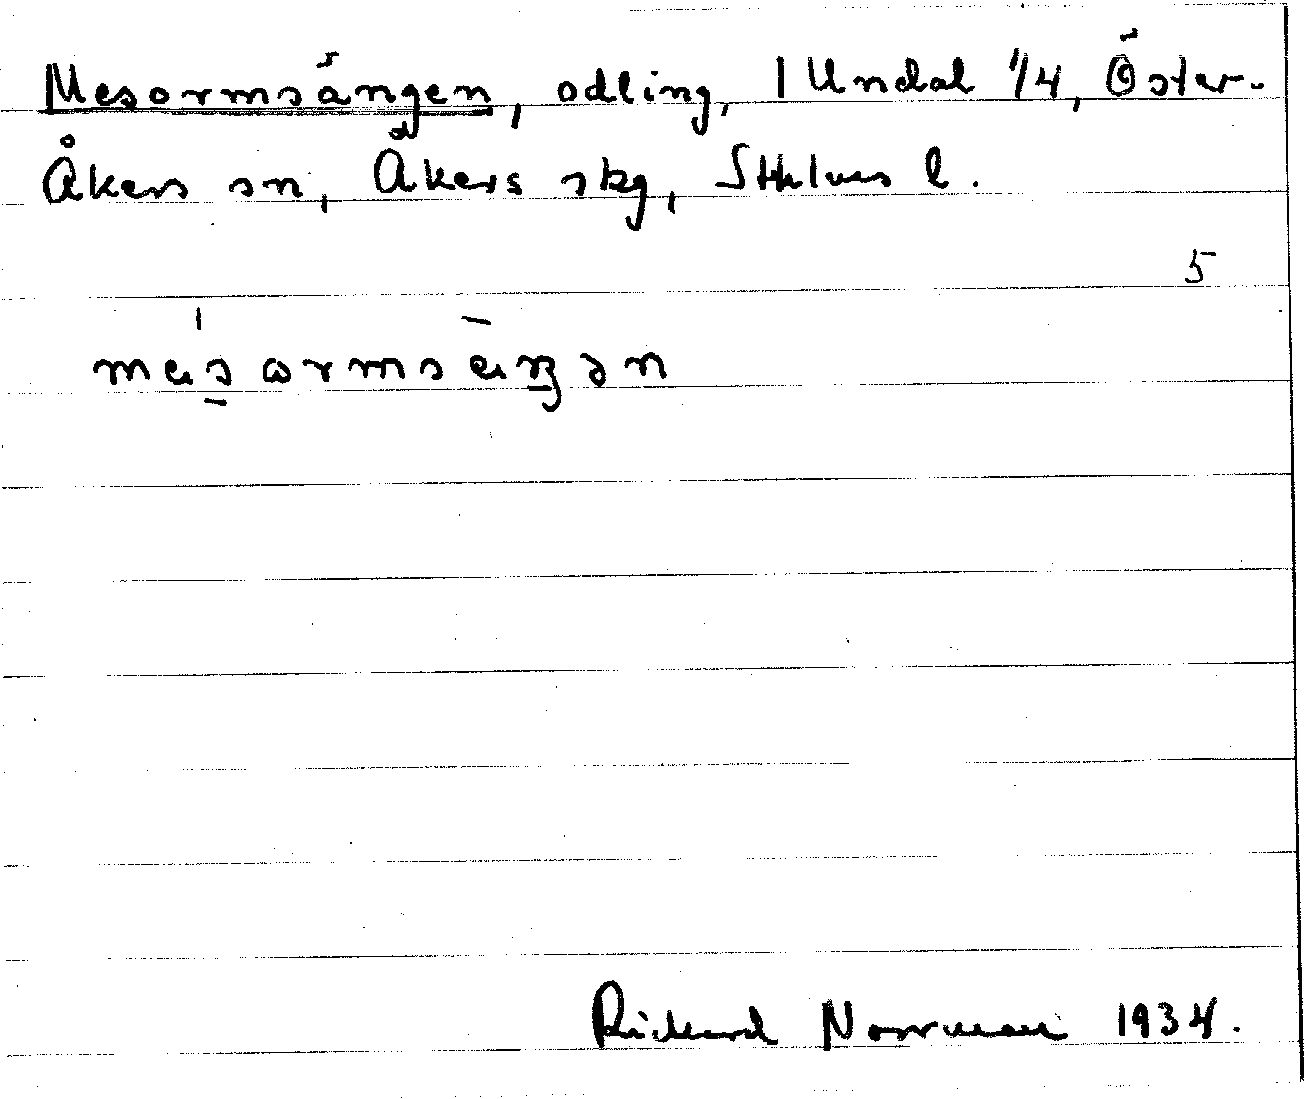 Mesormsängen, odling, 1 Undal 1/4, Öster-
Åkers sn, Åkers skg, Sthlms l.
5
Rickard Norrman 1934.